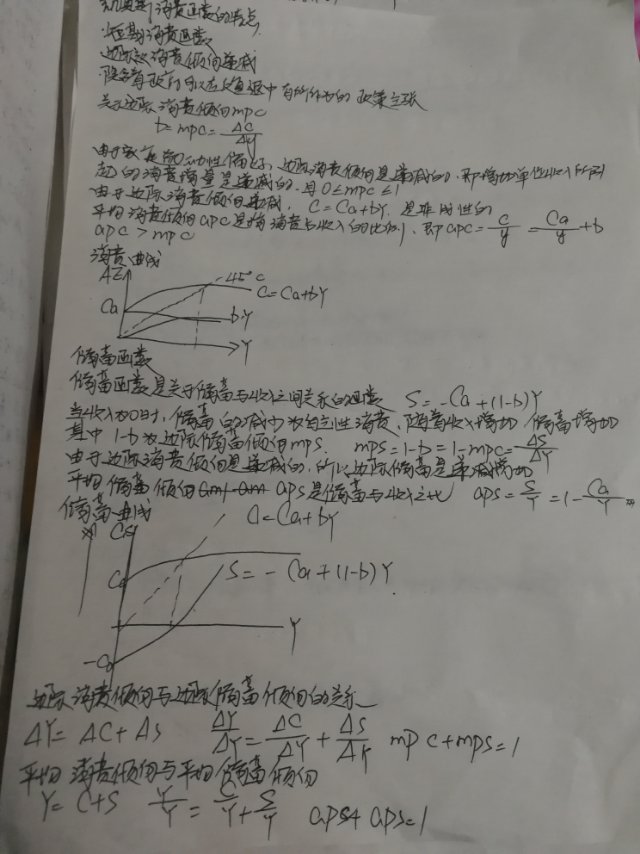 凯恩斯消费函数的特点
短期消费函数
边际消费倾向递减
隐含着政府可以在
中有所作为的政策主张
关于边际消费倾向mpc
b=mpc=ΔC/ΔY
由于
边际消费倾向是递减的,即增加单位收入所引
起的消费增量是递减的.且0≤mpc≤1
由于边际消费倾向递减,C=Ca+bY.是非线性的
平均消费倾向apc是指消费与收入的比例,即apc=C/y=Ca/y+b
apc>mpc
消费曲线
AE
45°
C
C=Ca+bY
Ca
bY
Y
储蓄函数
储蓄函数是关于储蓄与收入之间关系的函数 S=-Ca+(1-b)Y
当收入为0时,储蓄的减少为自主性消费,随着收入增加 储蓄增加
其中1-b为边际储蓄倾向mps. mps=1-b=1-mpc=ΔS/ΔY
由于边际消费倾向是递减的,所以边际储蓄是递增
平均储蓄倾向 aps是储蓄与收入之比 aps=S/Y=1-Ca/Y
储蓄曲线
CS
C=Ca+bY
Ca
S=-Ca+(1-b)Y
Y
-Ca
边际消费倾向与边际储蓄倾向的关系
ΔY=ΔC+ΔS ΔY/ΔY=ΔC/ΔY+ΔS/ΔY mpc+mps=1
平均消费倾向与平均储蓄倾向
Y=C+S Y/Y=C/Y+S/Y aps+aps=1